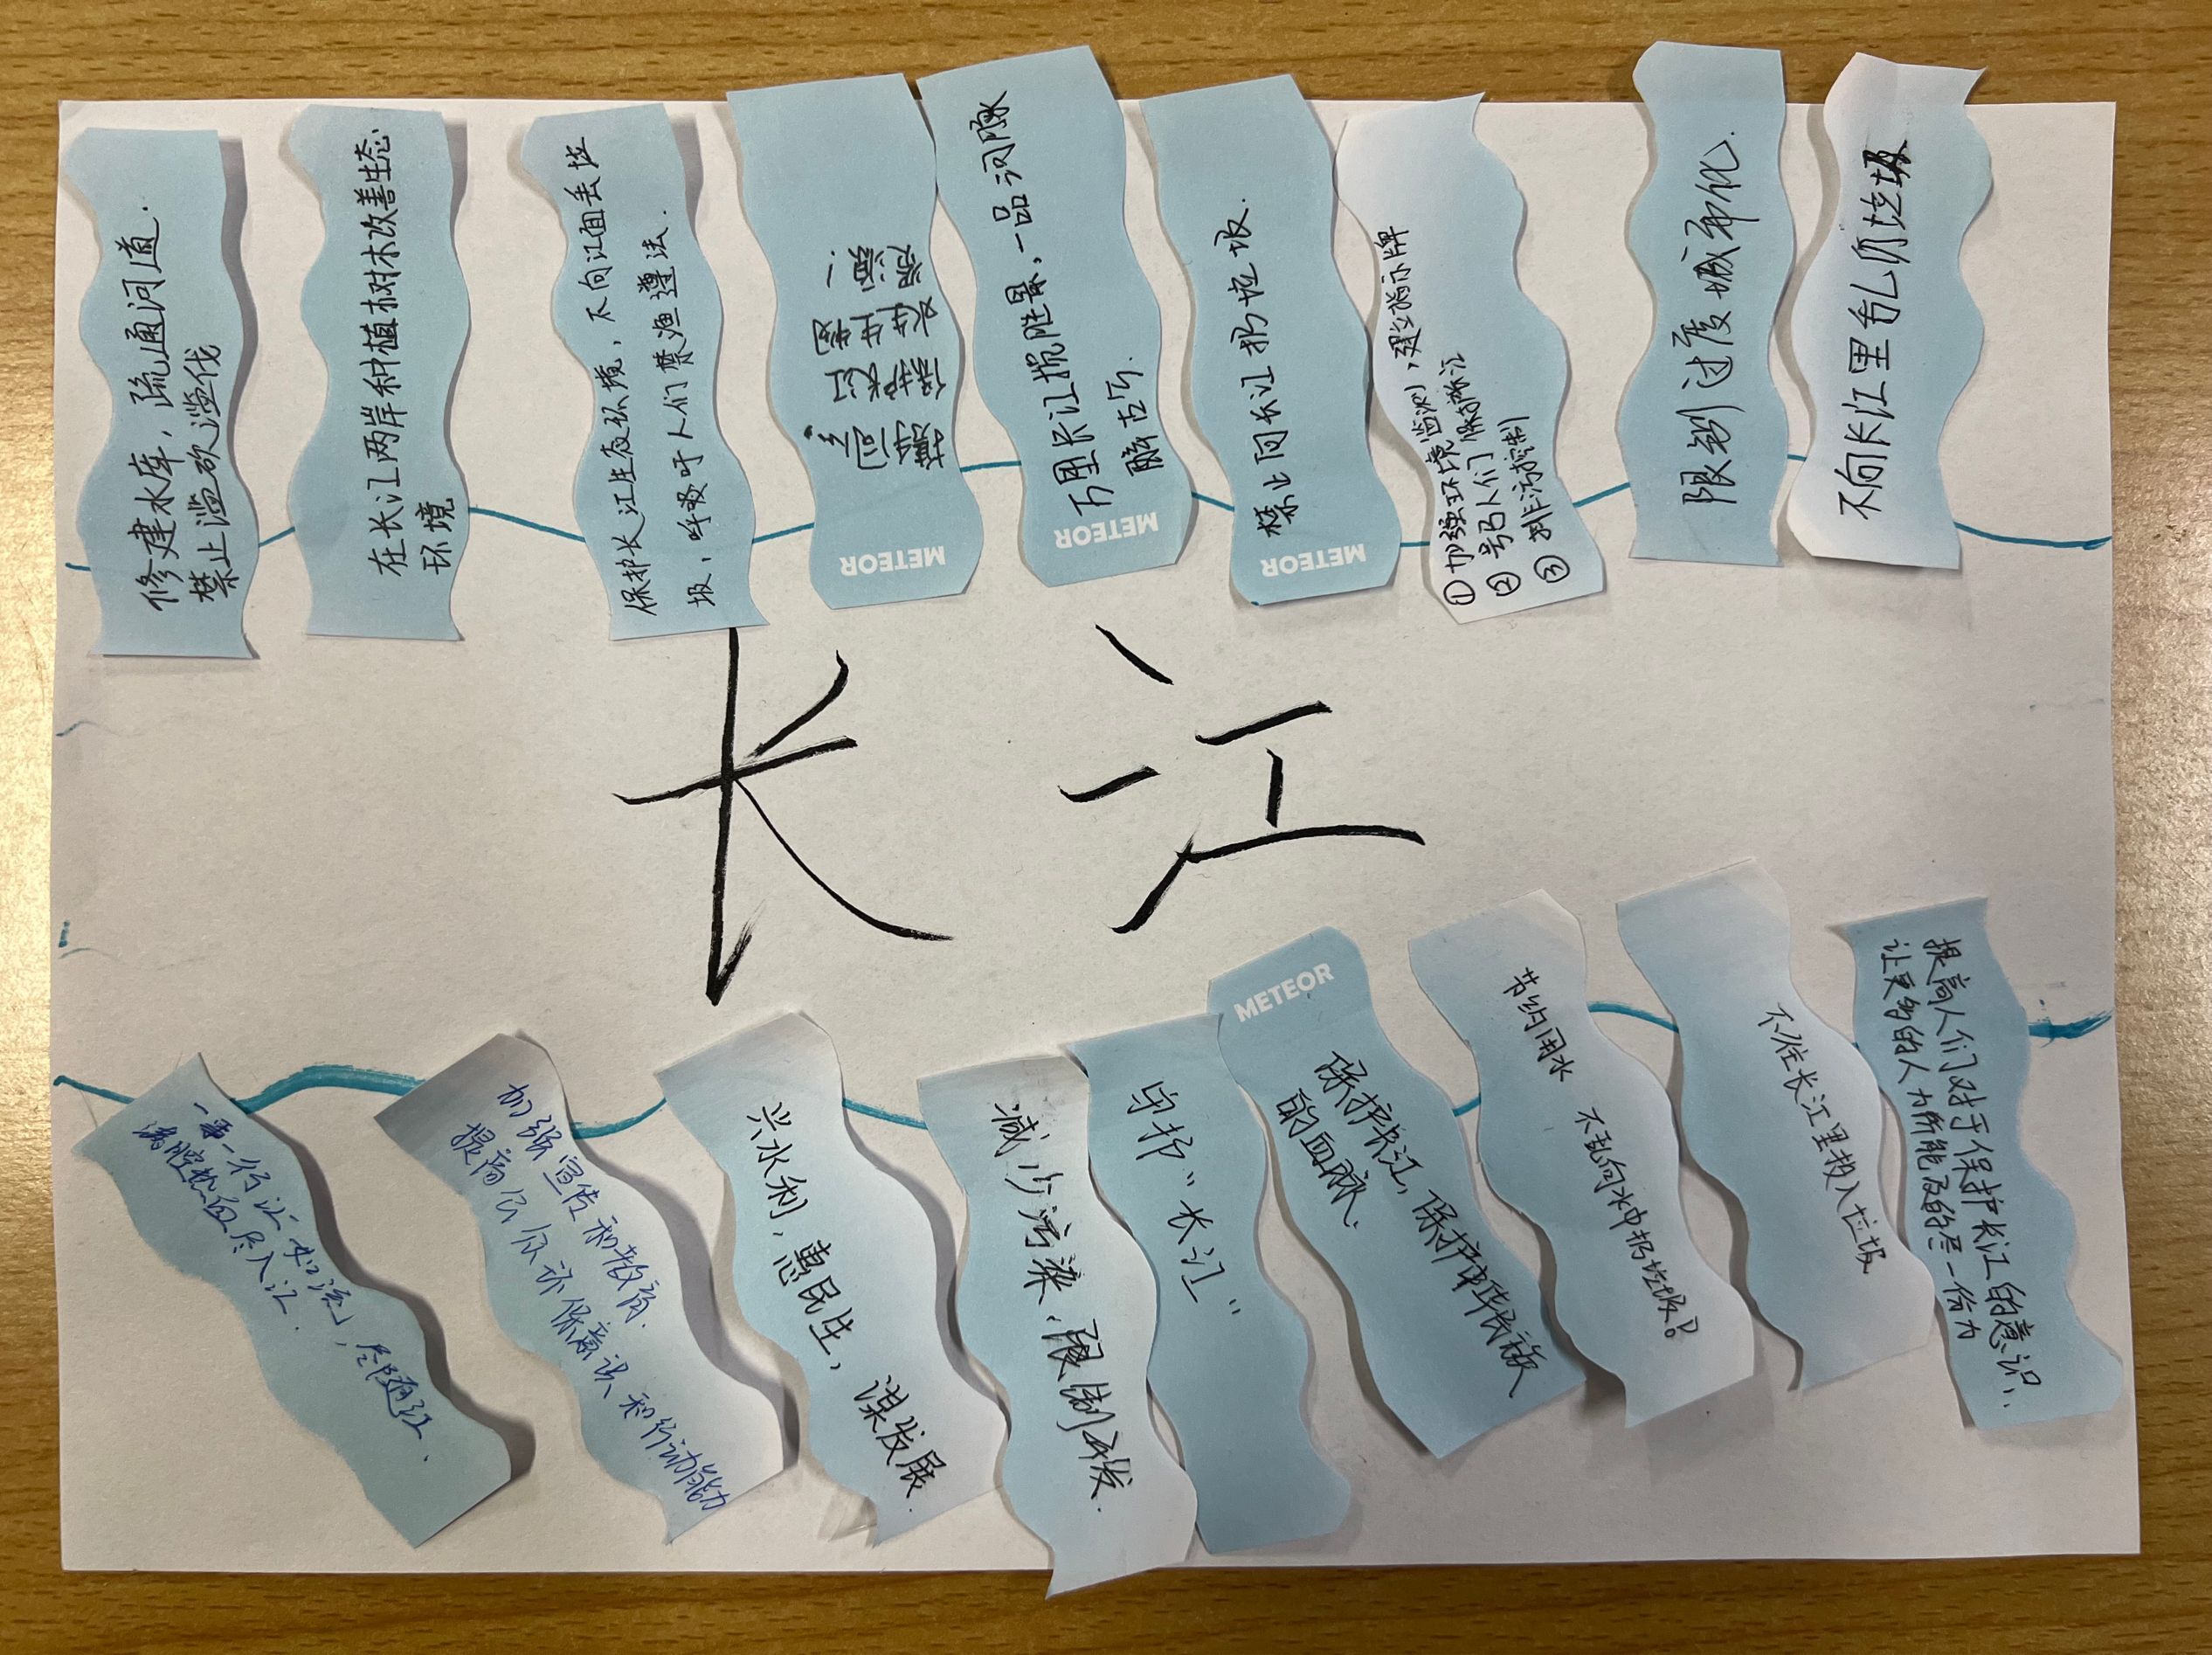 修建水库，疏通河道.
禁止滥砍滥伐
在长江两岸种植树木改善生态
环境
保护长江生态环境，不向江面丢垃
圾，呼吁人们禁渔遵法.
保护长江
METEOR
万里长江揽胜景，一品河豚
醉古今.
METEOR
禁止向长江扔垃圾.
METEOR
①加强环境监测，建立指示牌
②号召人们保护长江
③排污控制
限制过度城市化.
不向长江里乱扔垃圾
长江
行江如流，尽随江.
满腔热血尽入江.
加强宣传和教育.
提高公众环保意识和行动能力
兴水利，惠民生，谋发展.
减少污染，限制开发.
守护“长江”
METEOR
保护长江，保护中华民族
的血脉.
节约用水
不乱向水中扔垃圾!
不往长江里投入垃圾
提高人们对于保护长江的意识;
让更多的人力所能及的尽一份力